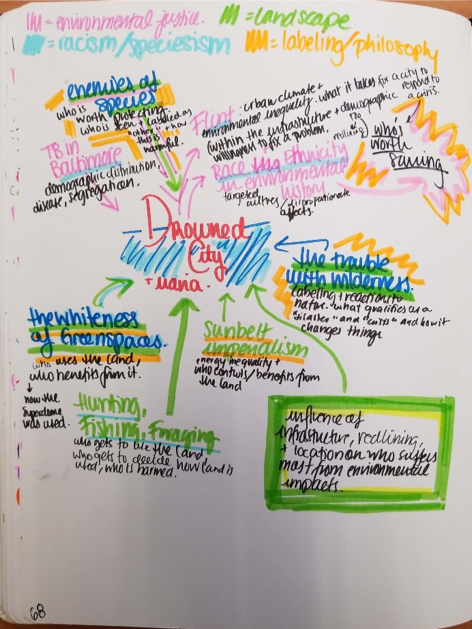 = environmental justice.
= landscape
= racism/speciesism
= labeling/philosophy
enemies of
species
who is
worth protecting
who is seen + labeled as
"other" + how
this is
harmful.
TB in
Baltimore
demographic distribution,
disease, segregation.
Flint
urban climate +
environmental inequality. what it takes for a city to
respond to
a crisis.
(within the infrastructure + demographic
willingness to fix a problem.
redlining
who's
worth
saving
Race + Ethnicity
in environmental
history
targeted
cultures / disproportionate
affects.
Drowned
City
+
nana.
the trouble
with wilderness.
labeling + reaction to
nature. what qualifies as a
"disaster" and "crisis" and how it
changes things
the whiteness
of Greenspaces.
who uses the land,
who benefits from it.
how the
Superdome
was used.
Sunbelt
imperialism
energy inequality +
who controls/benefits from
the land
Hunting,
Fishing, Foraging
who gets to use the land,
who gets to decide how land is
used, who is harmed.
influence of
infrastructure, redlining,
+ location on who suffers
most from environmental
impacts.
68